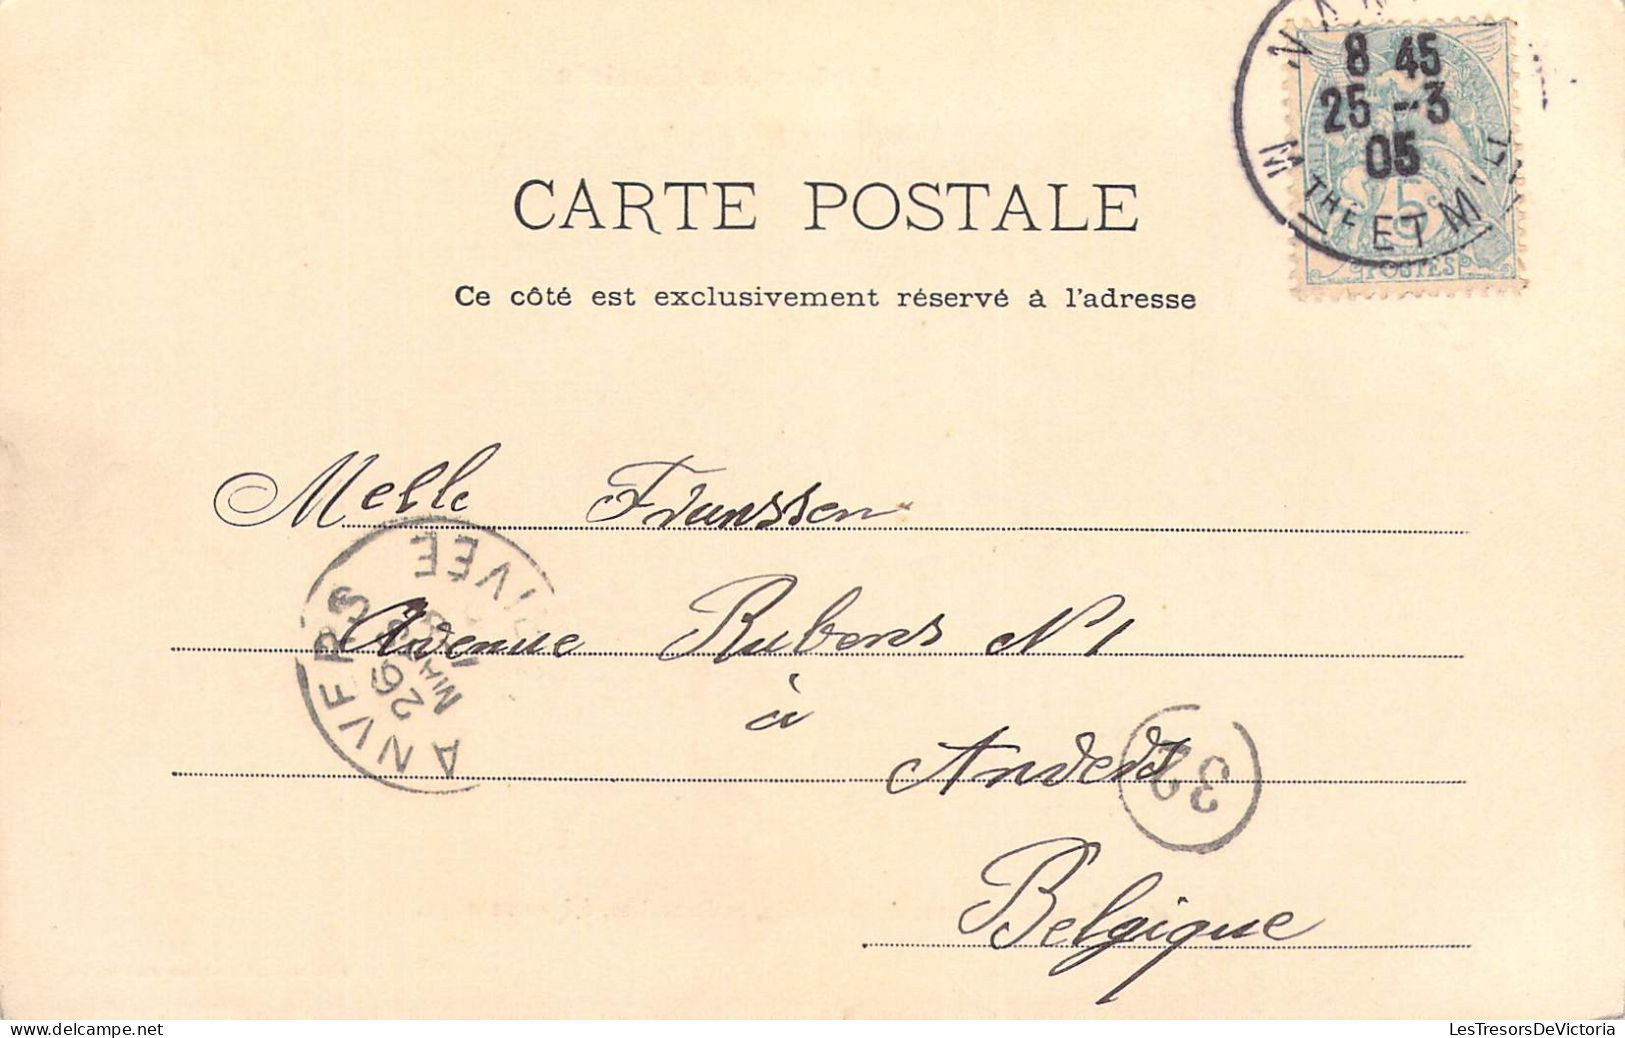 8 45
25 -3
05
MTHE ET M
5
POSTES
CARTE POSTALE
Ce côté est exclusivement réservé à l'adresse
Melle Franssen
Avenue Rubens N 1
à
Anvers
Belgique
ANVERS
26 MARS
32
LesTresorsDeVictoria